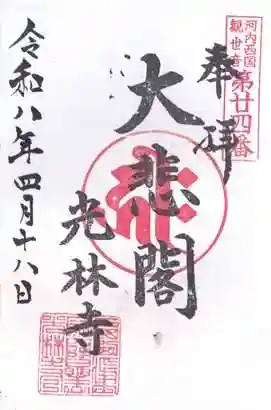 河内西国
観世音
第廿四番
奉拝
大悲閣
光林寺
令和八年四月十八日